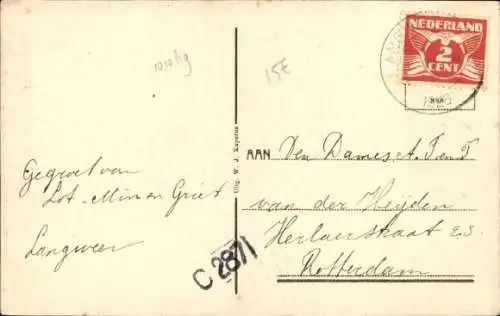 10.10/19
15€
NEDERLAND
2
CENT
Gegroet van
Lot. Min en Griet
Langweer
Uitg. W. J. Kuperus
AAN Den Dames A. T en T
van der Heijden
Herlaerstraat 23
Rotterdam
C 2871